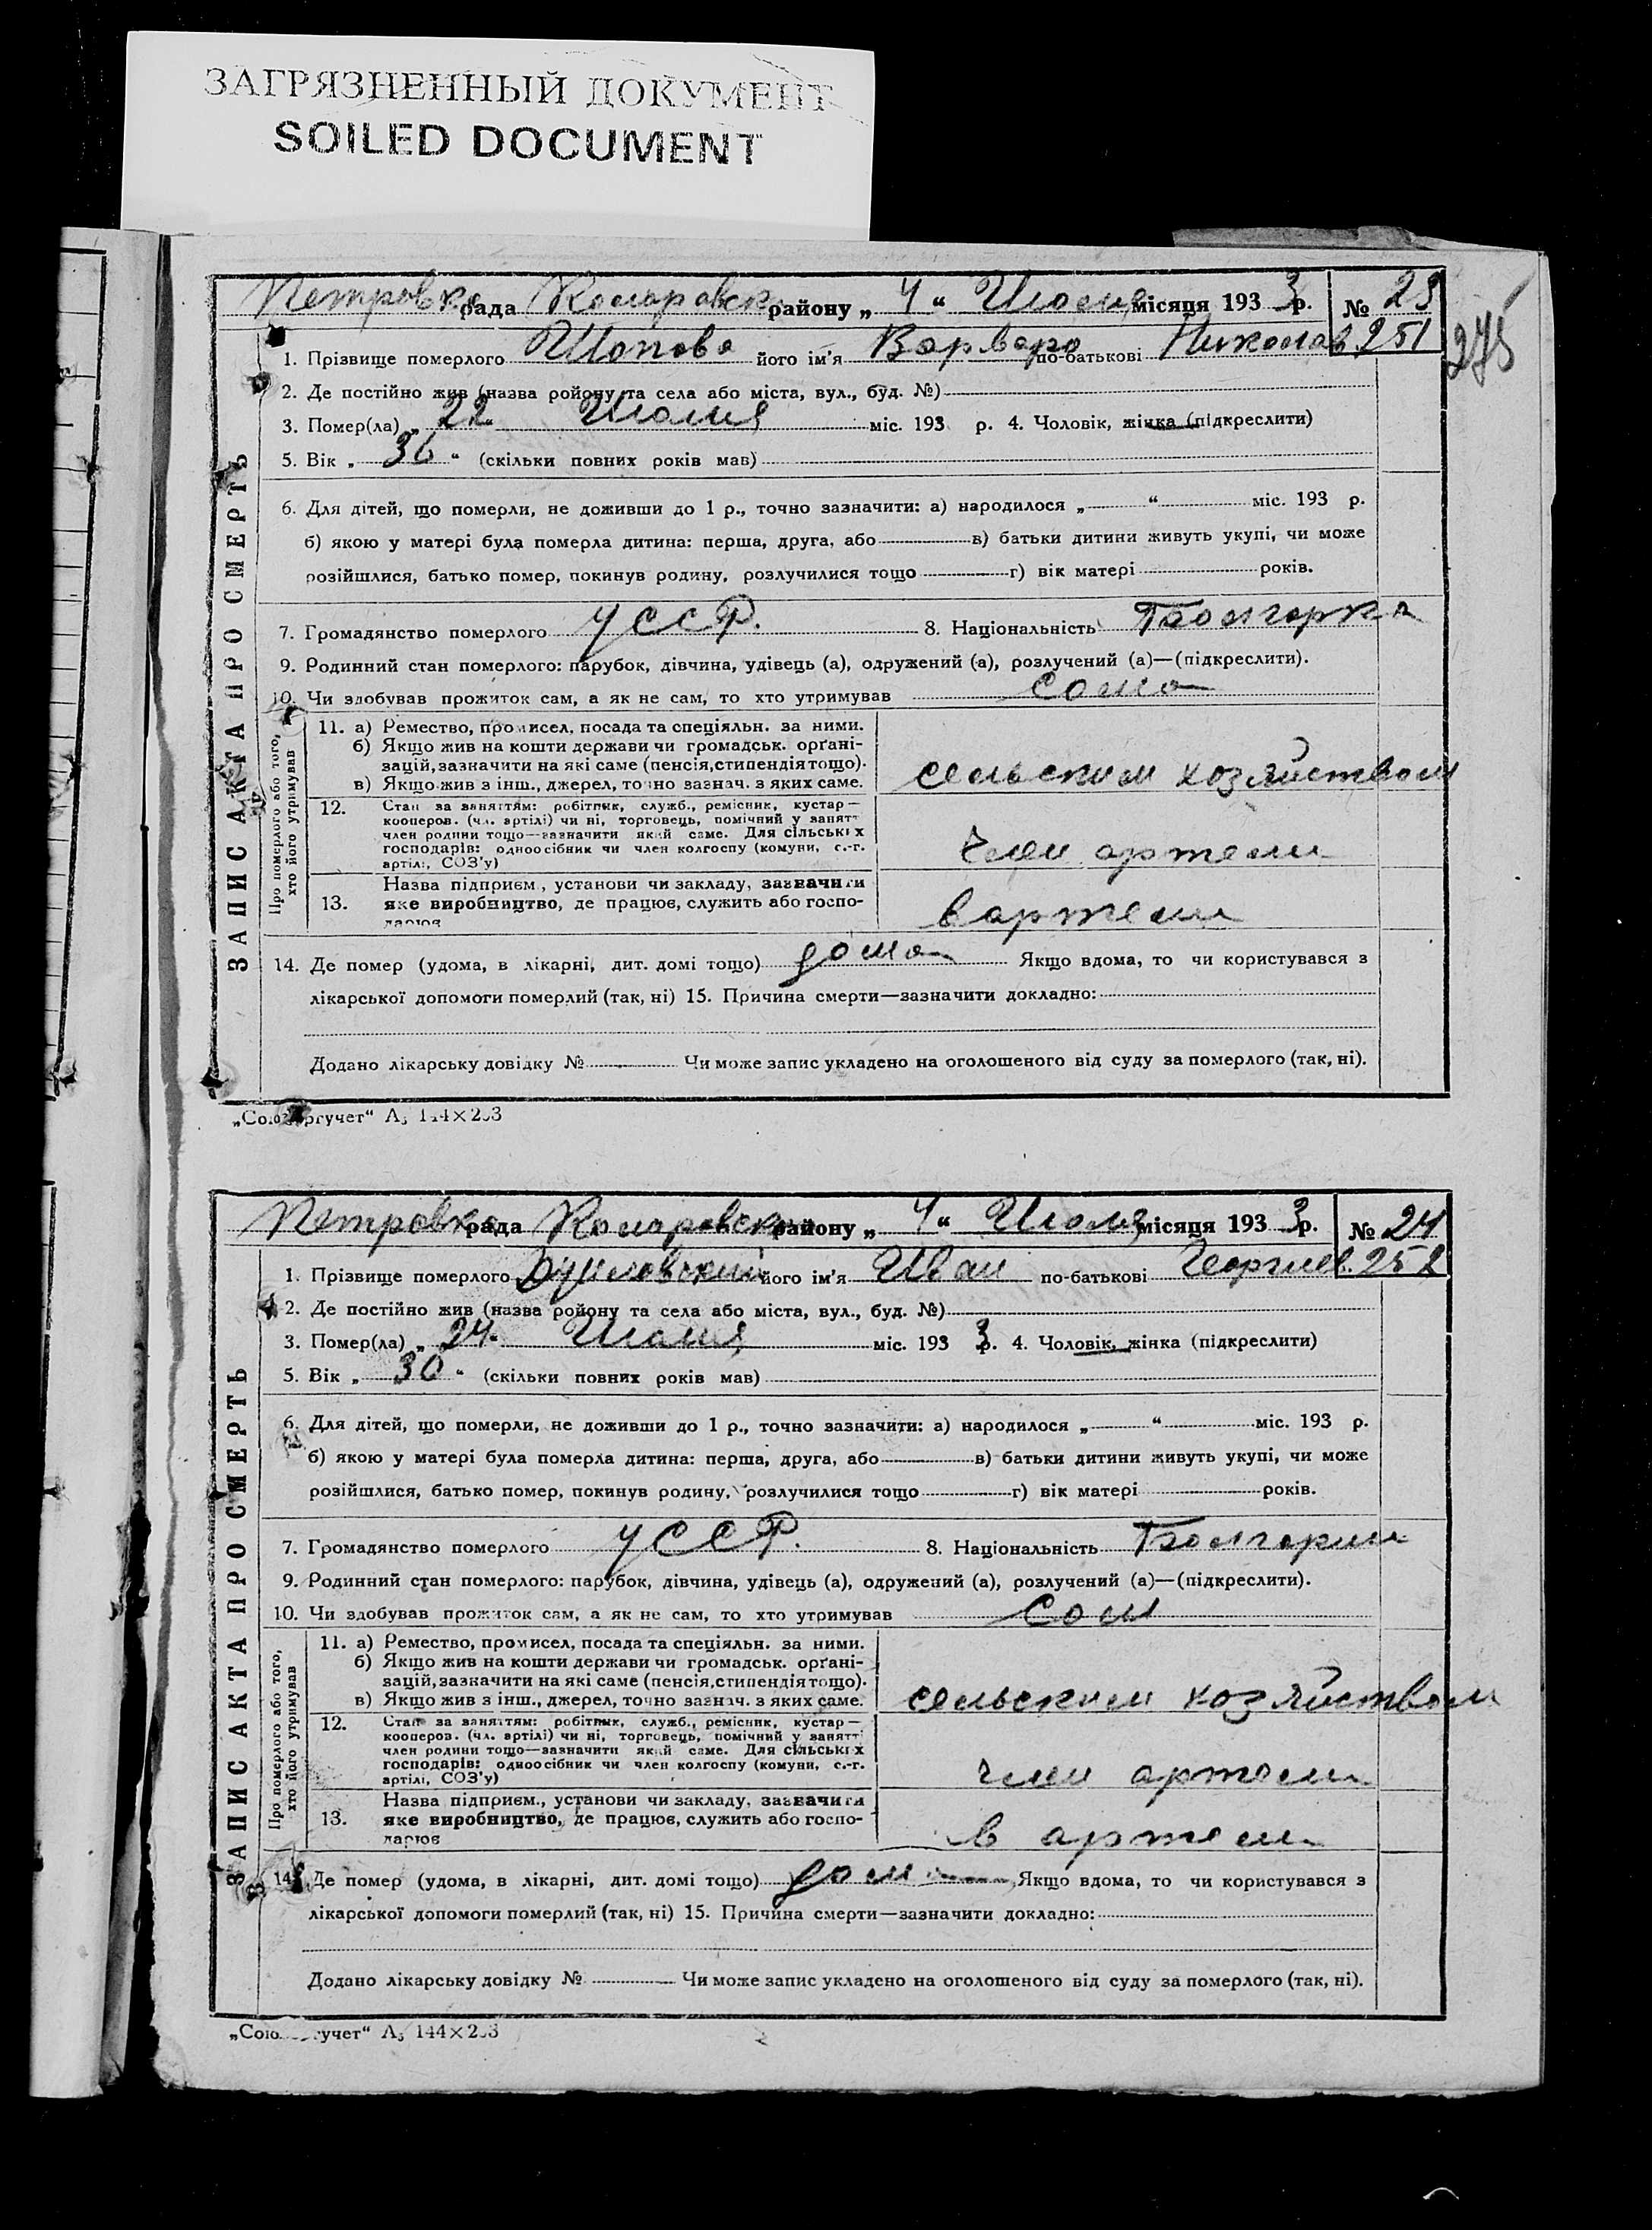 ЗАГРЯЗНЕННЫЙ ДОКУМЕНТ
SOILED DOCUMENT
Петровка рада района „ 4 “ місяця 193 3 р. № 23
251
275
1. Прізвище померлого його ім'я Варвара по-батькові Николав
2. Де постійно жив (назва ройону та села або міста, вул., буд. №)
3. Помер(ла) „ 22 міс. 193 р. 4. Чоловік, жінка (підкреслити)
5. Вік „ 36 “ (скільки повних років мав)
6. Для дітей, що померли, не доживши до 1 р., точно зазначити: а) народилося „ “ міс. 193 р.
б) якою у матері була померла дитина: перша, друга, або в) батьки дитини живуть укупі, чи може
розійшлися, батько помер, покинув родину, розлучилися тощо г) вік матері років.
7. Громадянство померлого УССР. 8. Національність Болгорка
9. Родинний стан померлого: парубок, дівчина, удівець (а), одружений (а), розлучений (а)—(підкреслити).
10. Чи здобував прожиток сам, а як не сам, то хто утримував сома
ЗАПИС АКТА ПРО СМЕРТЬ
Про померлого або того, хто його утримував
11. а) Ремество, промисел, посада та спеціяльн. за ними.
б) Якщо жив на кошти держави чи громадськ. орґані-
зацій, зазначити на які саме (пенсія, стипендія тощо).
в) Якщо жив з інш., джерел, точно зазнач. з яких саме.
сельским хозяйством
12. Стан за заняттям: робітник, служб., ремісник, кустар—
кооперов. (чл. артілі) чи ні, торговець, помічний у занятт
член родини тощо—зазначити який саме. Для сільських
господарів: одноосібник чи член колгоспу (комуни, с.-г.
артілі, СОЗ'у)
член артели
13. Назва підприєм., установи чи закладу, зазначити
яке виробництво, де працює, служить або госпо-
дарює
в артели
14. Де помер (удома, в лікарні, дит. домі тощо) дома Якщо вдома, то чи користувався з
лікарської допомоги померлий (так, ні) 15. Причина смерти—зазначити докладно:
Додано лікарську довідку № Чи може запис укладено на оголошеного від суду за померлого (так, ні).
144×203
Петровка рада району „ 4 “ Июля місяця 193 3 р. № 24
252
1. Прізвище померлого його ім'я Иван по-батькові Георгиев.
2. Де постійно жив (назва ройону та села або міста, вул., буд. №)
3. Помер(ла) „ 24. міс. 193 3 р. 4. Чоловік, жінка (підкреслити)
5. Вік „ 30 “ (скільки повних років мав)
6. Для дітей, що померли, не доживши до 1 р., точно зазначити: а) народилося „ “ міс. 193 р.
б) якою у матері була померла дитина: перша, друга, або в) батьки дитини живуть укупі, чи може
розійшлися, батько помер, покинув родину, розлучилися тощо г) вік матері років.
7. Громадянство померлого УССР. 8. Національність Болгорин
9. Родинний стан померлого: парубок, дівчина, удівець (а), одружений (а), розлучений (а)—(підкреслити).
10. Чи здобував прожиток сам, а як не сам, то хто утримував сом
ЗАПИС АКТА ПРО СМЕРТЬ
Про померлого або того, хто його утримував
11. а) Ремество, промисел, посада та спеціяльн. за ними.
б) Якщо жив на кошти держави чи громадськ. орґані-
зацій, зазначити на які саме (пенсія, стипендія тощо).
в) Якщо жив з інш., джерел, точно зазнач. з яких саме.
сельским хозяйством
12. Стан за заняттям: робітник, служб., ремісник, кустар—
кооперов. (чл. артілі) чи ні, торговець, помічний у занятт
член родини тощо—зазначити який саме. Для сільських
господарів: одноосібник чи член колгоспу (комуни, с.-г.
артілі, СОЗ'у)
член артели
13. Назва підприєм., установи чи закладу, зазначити
яке виробництво, де працює, служить або госпо-
дарює
в артели
14. Де помер (удома, в лікарні, дит. домі тощо) дома Якщо вдома, то чи користувався з
лікарської допомоги померлий (так, ні) 15. Причина смерти—зазначити докладно:
Додано лікарську довідку № Чи може запис укладено на оголошеного від суду за померлого (так, ні).
144×203